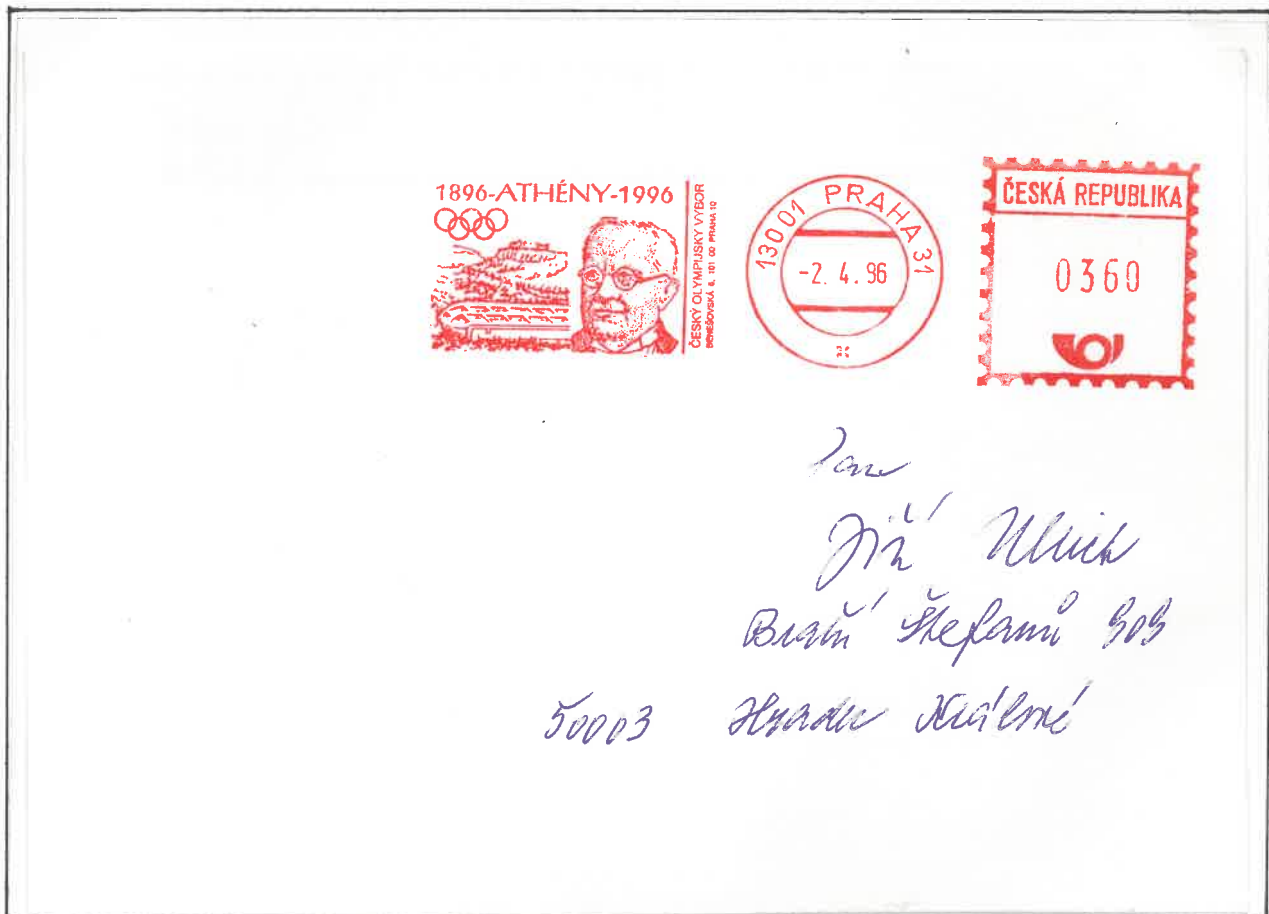 1896-ATHÉNY-1996
ČESKÝ OLYMPIJSKÝ VÝBOR
BENEŠOVSKÁ 6, 101 00 PRAHA 10
13001 PRAHA 31
-2. 4. 96
ČESKÁ REPUBLIKA
0360
Pan
Jiří Ulrich
Bratří Štefanů 909
50003 Hradec Králové